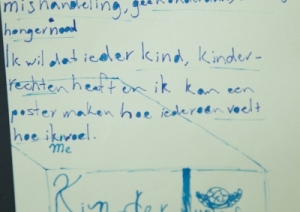 mishandeling,
hongernood
Ik wil dat ieder kind, kinder-
rechten heeft en ik kan een
poster maken hoe iedereen voelt
hoe ik voel.
Me
Kinder